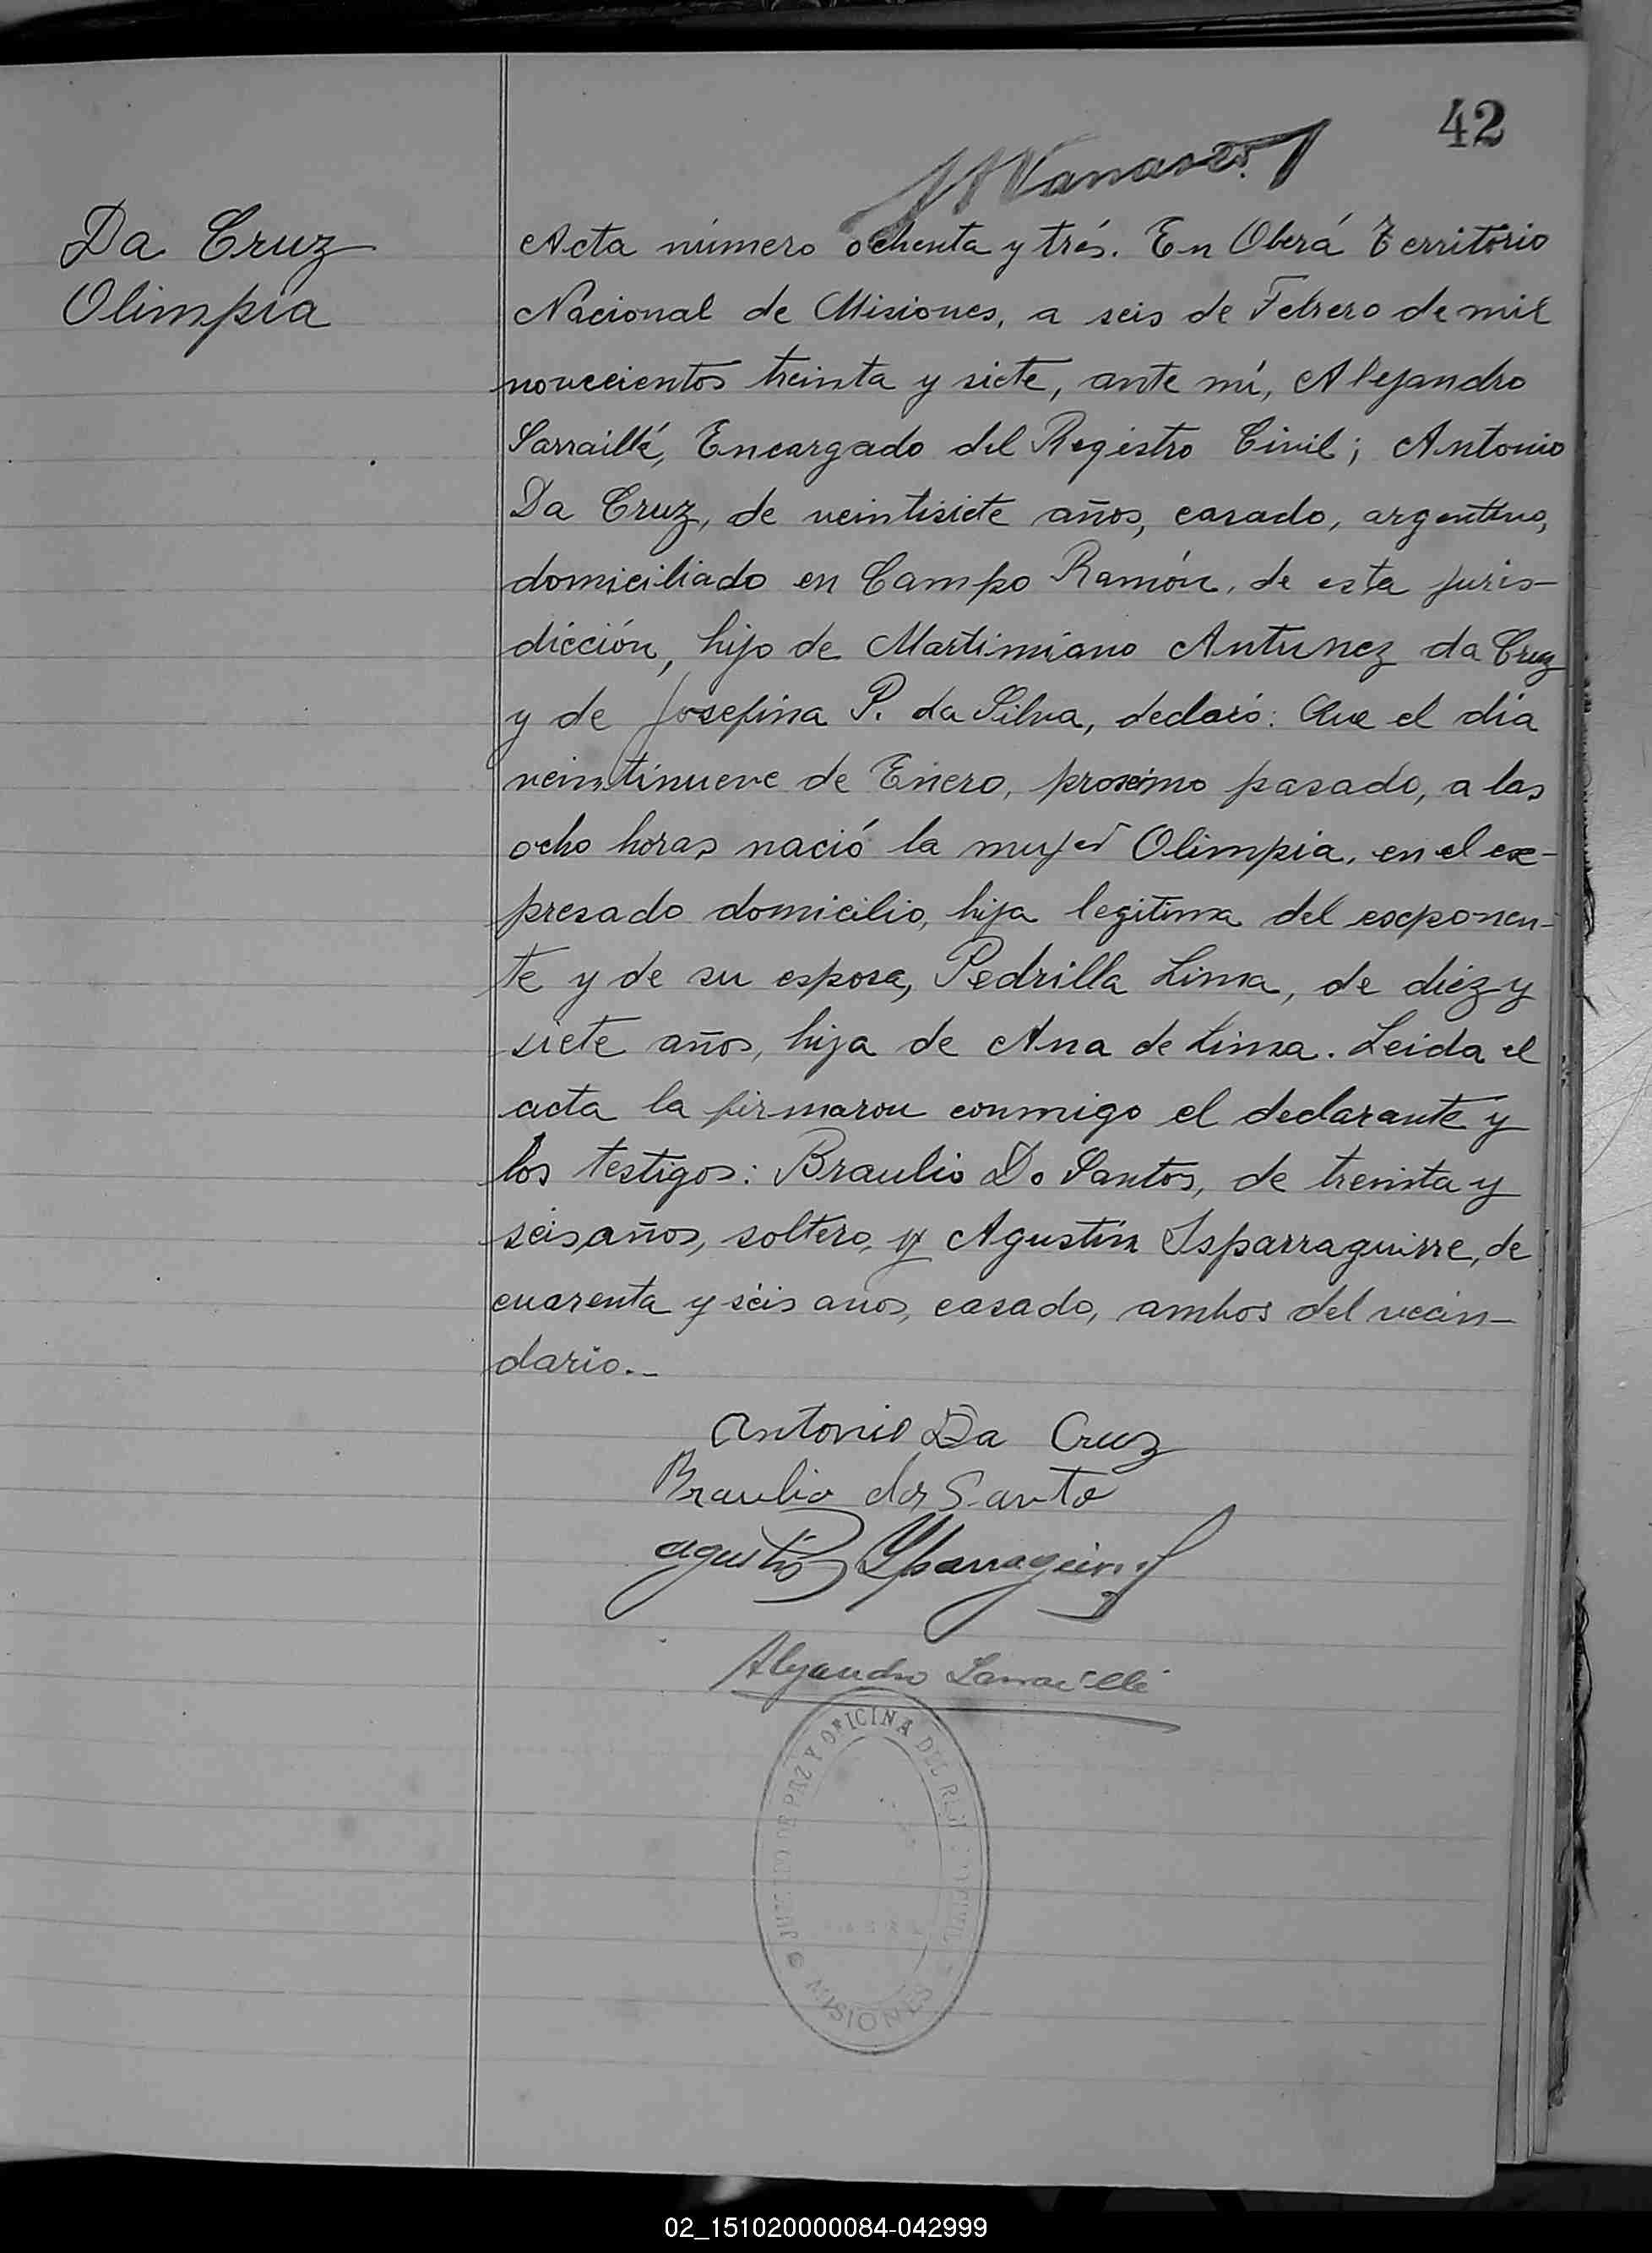 42
Da Cruz
Olimpia
Acta número ochenta y trés. En Oberá Territorio
Nacional de Misiones, a seis de Febrero de mil
novecientos treinta y siete, ante mí, Alejandro
Sarraillé, Encargado del Registro Civil; Antonio
Da Cruz, de veintisiete años, casado, argentino,
domiciliado en Campo Ramón, de esta juris-
dicción, hijo de Martimiano Antunez da Cruz
y de Josefina P. da Silva, declaró: Que el día
veintinueve de Enero, proximo pasado, a las
ocho horas nació la mujer Olimpia, en el ex-
presado domicilio, hija legitima del exponen-
te y de su esposa, Pedrilla Lima, de diez y
siete años, hija de Ana de Lima. Leida el
acta la firmaron conmigo el declarante y
los testigos: Braulio Do Santos, de treinta y
seis años, soltero, y Agustín Isparraguirre, de
cuarenta y seis años, casado, ambos del vecin-
dario.-
Antonio Da Cruz
Braulio dos Santo
Agustin Ysparraguirre
Alejandro Sarraillé
JUZGADO DE PAZ Y OFICINA DEL REG CIVIL
MISIONES
02_151020000084-042999